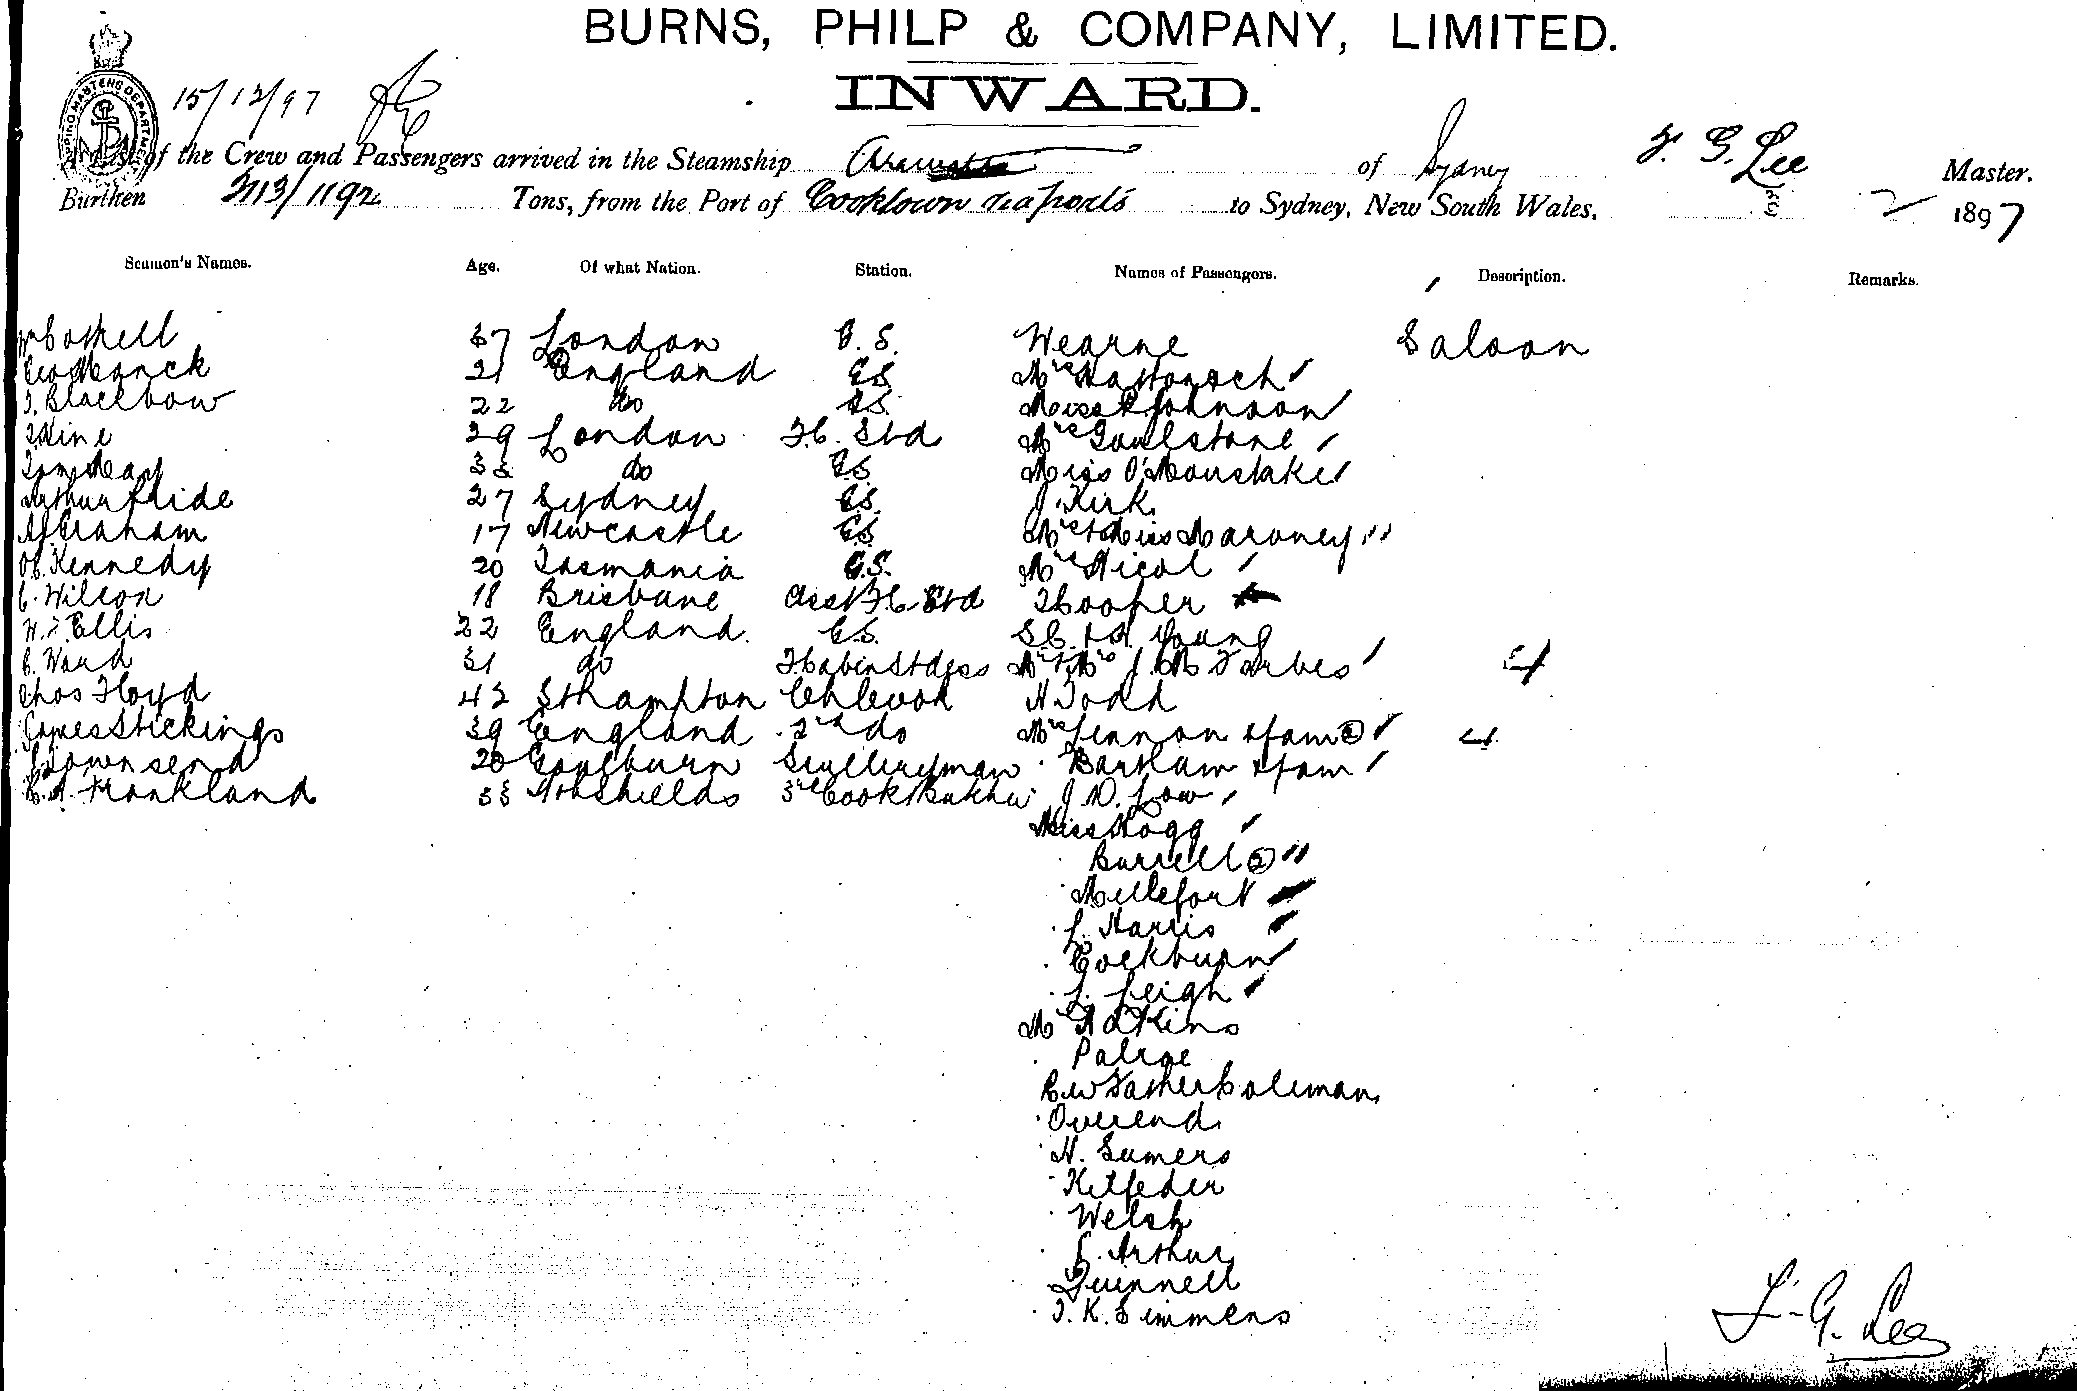 BURNS, PHILP & COMPANY, LIMITED.
INWARD.
15/12/97
of the Crew and Passengers arrived in the Steamship of Sydney F. G. Lee Master.
Burthen 2113/1192 Tons, from the Port of Cooktown via ports to Sydney, New South Wales, 2 1897
Seamen's Names. Age. Of what Nation. Station. Names of Passengers. Description. Remarks.
37 London G.S. Wearne Saloon
21 England G.S. Mrs
J. Blackbow 22 do G.S. Miss Johnson
29 London F.C. Std Mrs Goulstone
33 do G.S. Miss
Arthur Hide 27 Sydney G.S. J. Kirk
Graham 17 Newcastle G.S. Mrs & Miss Maroney
Kennedy 20 Tasmania G.S. Mrs Nicol
C. Wilson 18 Brisbane Asst F.C. Std Hooper
W. J. Ellis 22 England G.S. Young
C. Ward 31 do F Cabin Stdess Mr & Mrs J. M. Forbes 4
Thos Floyd 42 Sthampton Ch Cook H Todd
James Stickings 39 England 2nd do Mrs Lennon & fam 2 4
Townsend 20 Goulburn Sculleryman Barslaw & fam
Frankland 33 Nthshields 3rd Cook & Baker J. D. Low
Miss Hogg
Burrell 2
Millefort
L. Harris
Cockburn
L. Leigh
Mr Adkins
Palroe
Rev Father Coleman
Overend
H. Sumers
Kilfeder
Welsh
C. Arthur
Quinnell
J. K. Simmens
F. G. Lee